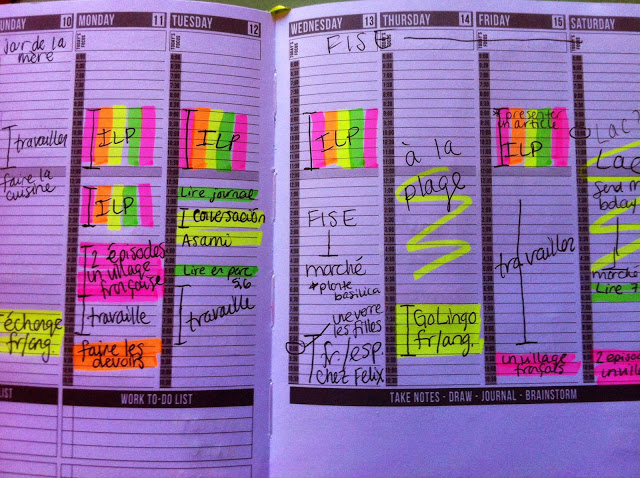 UNDAY 10
MONDAY 11
TUESDAY 12
WEDNESDAY 13
THURSDAY 14
FRIDAY 15
SATURDAY
TODAY'S FOCUS
TODAY'S FOCUS
TODAY'S FOCUS
TODAY'S FOCUS
TODAY'S FOCUS
TODAY'S FOCUS
Jour de la
mère
travailler
faire la
cuisine
échange
fr/ang.
ILP
ILP
2 épisodes
un village
française
travaille
faire les
devoirs
ILP
Lire journal
conversación
Asami
Lire en parc
travaille
FISE
ILP
FISE
marché
*plante
basilica
une verre
les filles
fr./esp.
chez Felix
à la
plage
GoLingo
fr/ang.
*presenter
un article
ILP
travailler
un village
français
Send m
bday
marché
Lire 7
2 épisodes
un villa
LIST
WORK TO-DO LIST
TAKE NOTES - DRAW - JOURNAL - BRAINSTORM